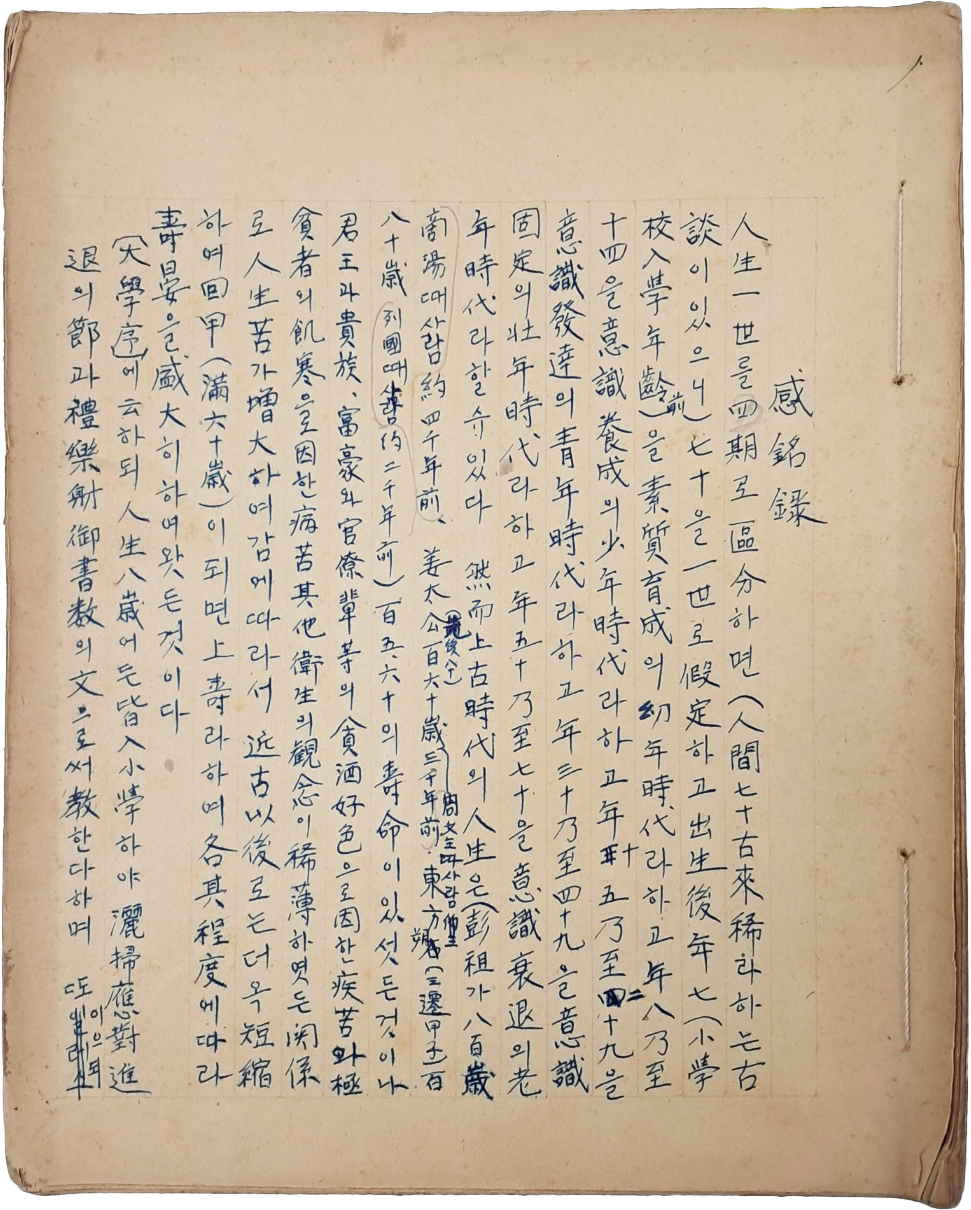 感銘錄
人生一世를 四期로 區分하면 (人間七十古來稀라하는古
談이있으니) 七十을 一世로 假定하고 出生後 年七(小學
校入學年齡前)을 素質育成의 幼年時代라하고 年八乃至
十四을 意識養成의 少年時代라하고 年十五乃至二十九을
意識發達의 青年時代라하고 年三十乃至四十九을 意識
固定의 壯年時代라하고 年五十乃至七十을 意識衰退의老
年時代라할수있다 然而上古時代의人生은(彭祖가八百歲
商湯때사람約四千年前、姜太公百六十歲三千年前 周文王때사람 東方朔(三遷甲子百
八十歲 列國때사람約二千年前) 百五、六十의 壽命이있섯든것이나
君王과貴族、富豪와官僚輩等의 貪酒好色으로因한疾苦와極
貧者의 飢寒으로因한病苦其他衛生의觀念이稀薄하엿든関係
로 人生苦가增大하여감에따라서 近古以後로는더옥短縮
하여回甲(滿六十歲)이되면上壽라하여各其程度에따라
壽宴을盛大히하여왓든것이다
(大學序)에云하되人生八歲어든皆入小學하야灑掃應對進
退의節과禮樂射御書数의文으로써教한다하며 또